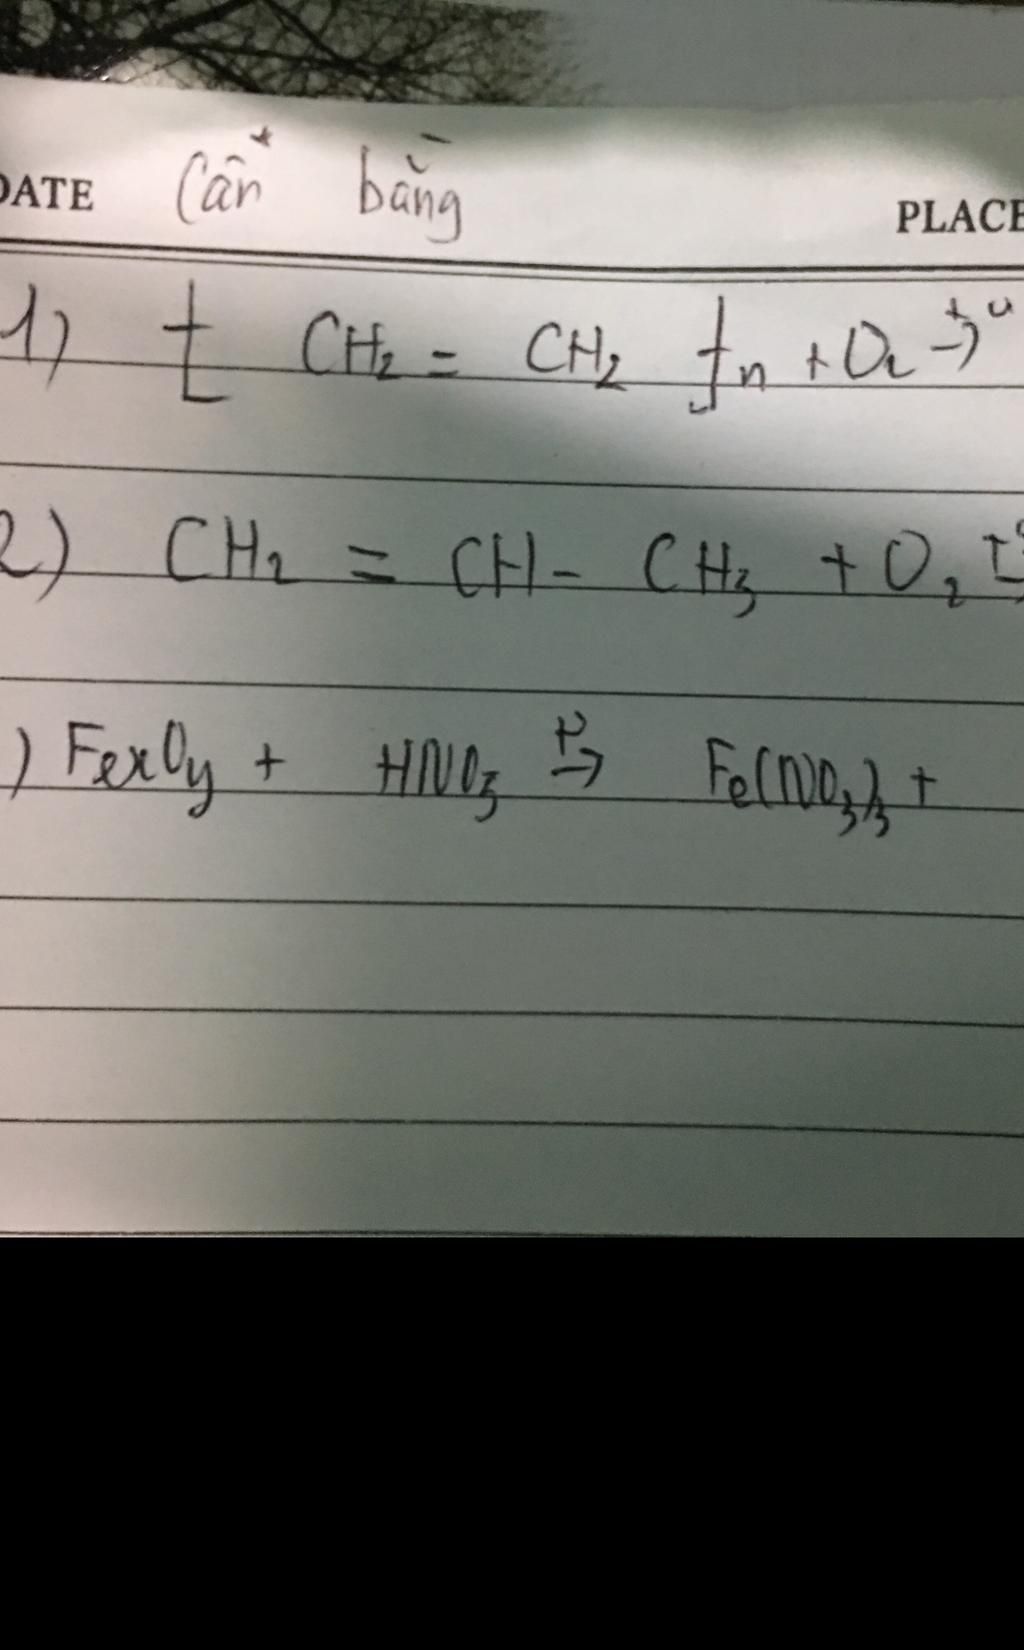 DATE Cân bằng PLACE
1) [ CH2 = CH2 ]n + O2 →
2) CH2 = CH - CH3 + O2
) FexOy + HNO3 → Fe(NO3)3 +